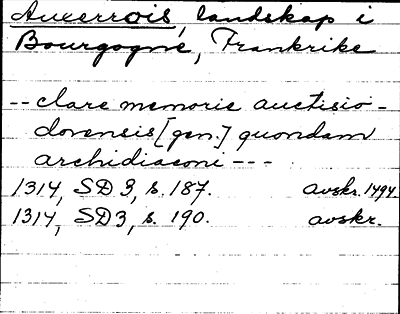 Auxerrois, landskap i
Bourgogne, Frankrike
-- clare memorie auctisio-
dorensis [gen.] quondam
archidiaconi ---
1314, SD 3, s. 187. avskr. 1494.
1314, SD3, s. 190. avskr.